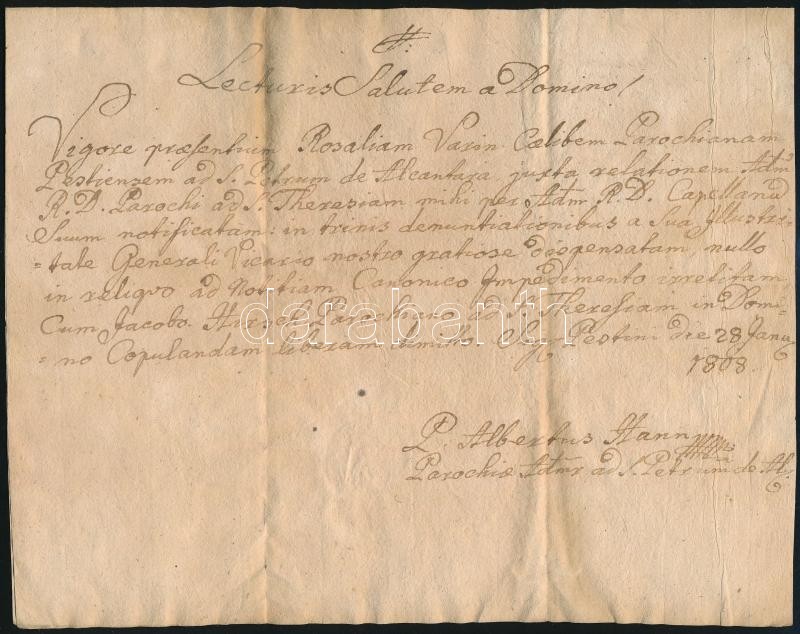 Lecturis Salutem a Domino!
Vigore præsentium Rosaliam Varin Cælibem Parochianam
Pestiensem ad S. Petrum de Alcantara, juxta relationem Adm
R. D. Parochi ad S. Theresiam mihi per Adm R. D. Capellanū
Suum notificatam: in trinis denuntiationibus a Sua Illustri-
=tate Generali Vicario nostro gratiose dispensatam, nullo
in reliquo ad Notitiam Canonico Impedimento irretitam,
Cum Jacobo Parochiano ad S. Theresiam in Domi-
=no Copulandam liberam dimitto. Pestini die 28 Janu
1808.
P. Albertus Hann
Parochiæ Admr ad S. Petrum de Al:
darabanth